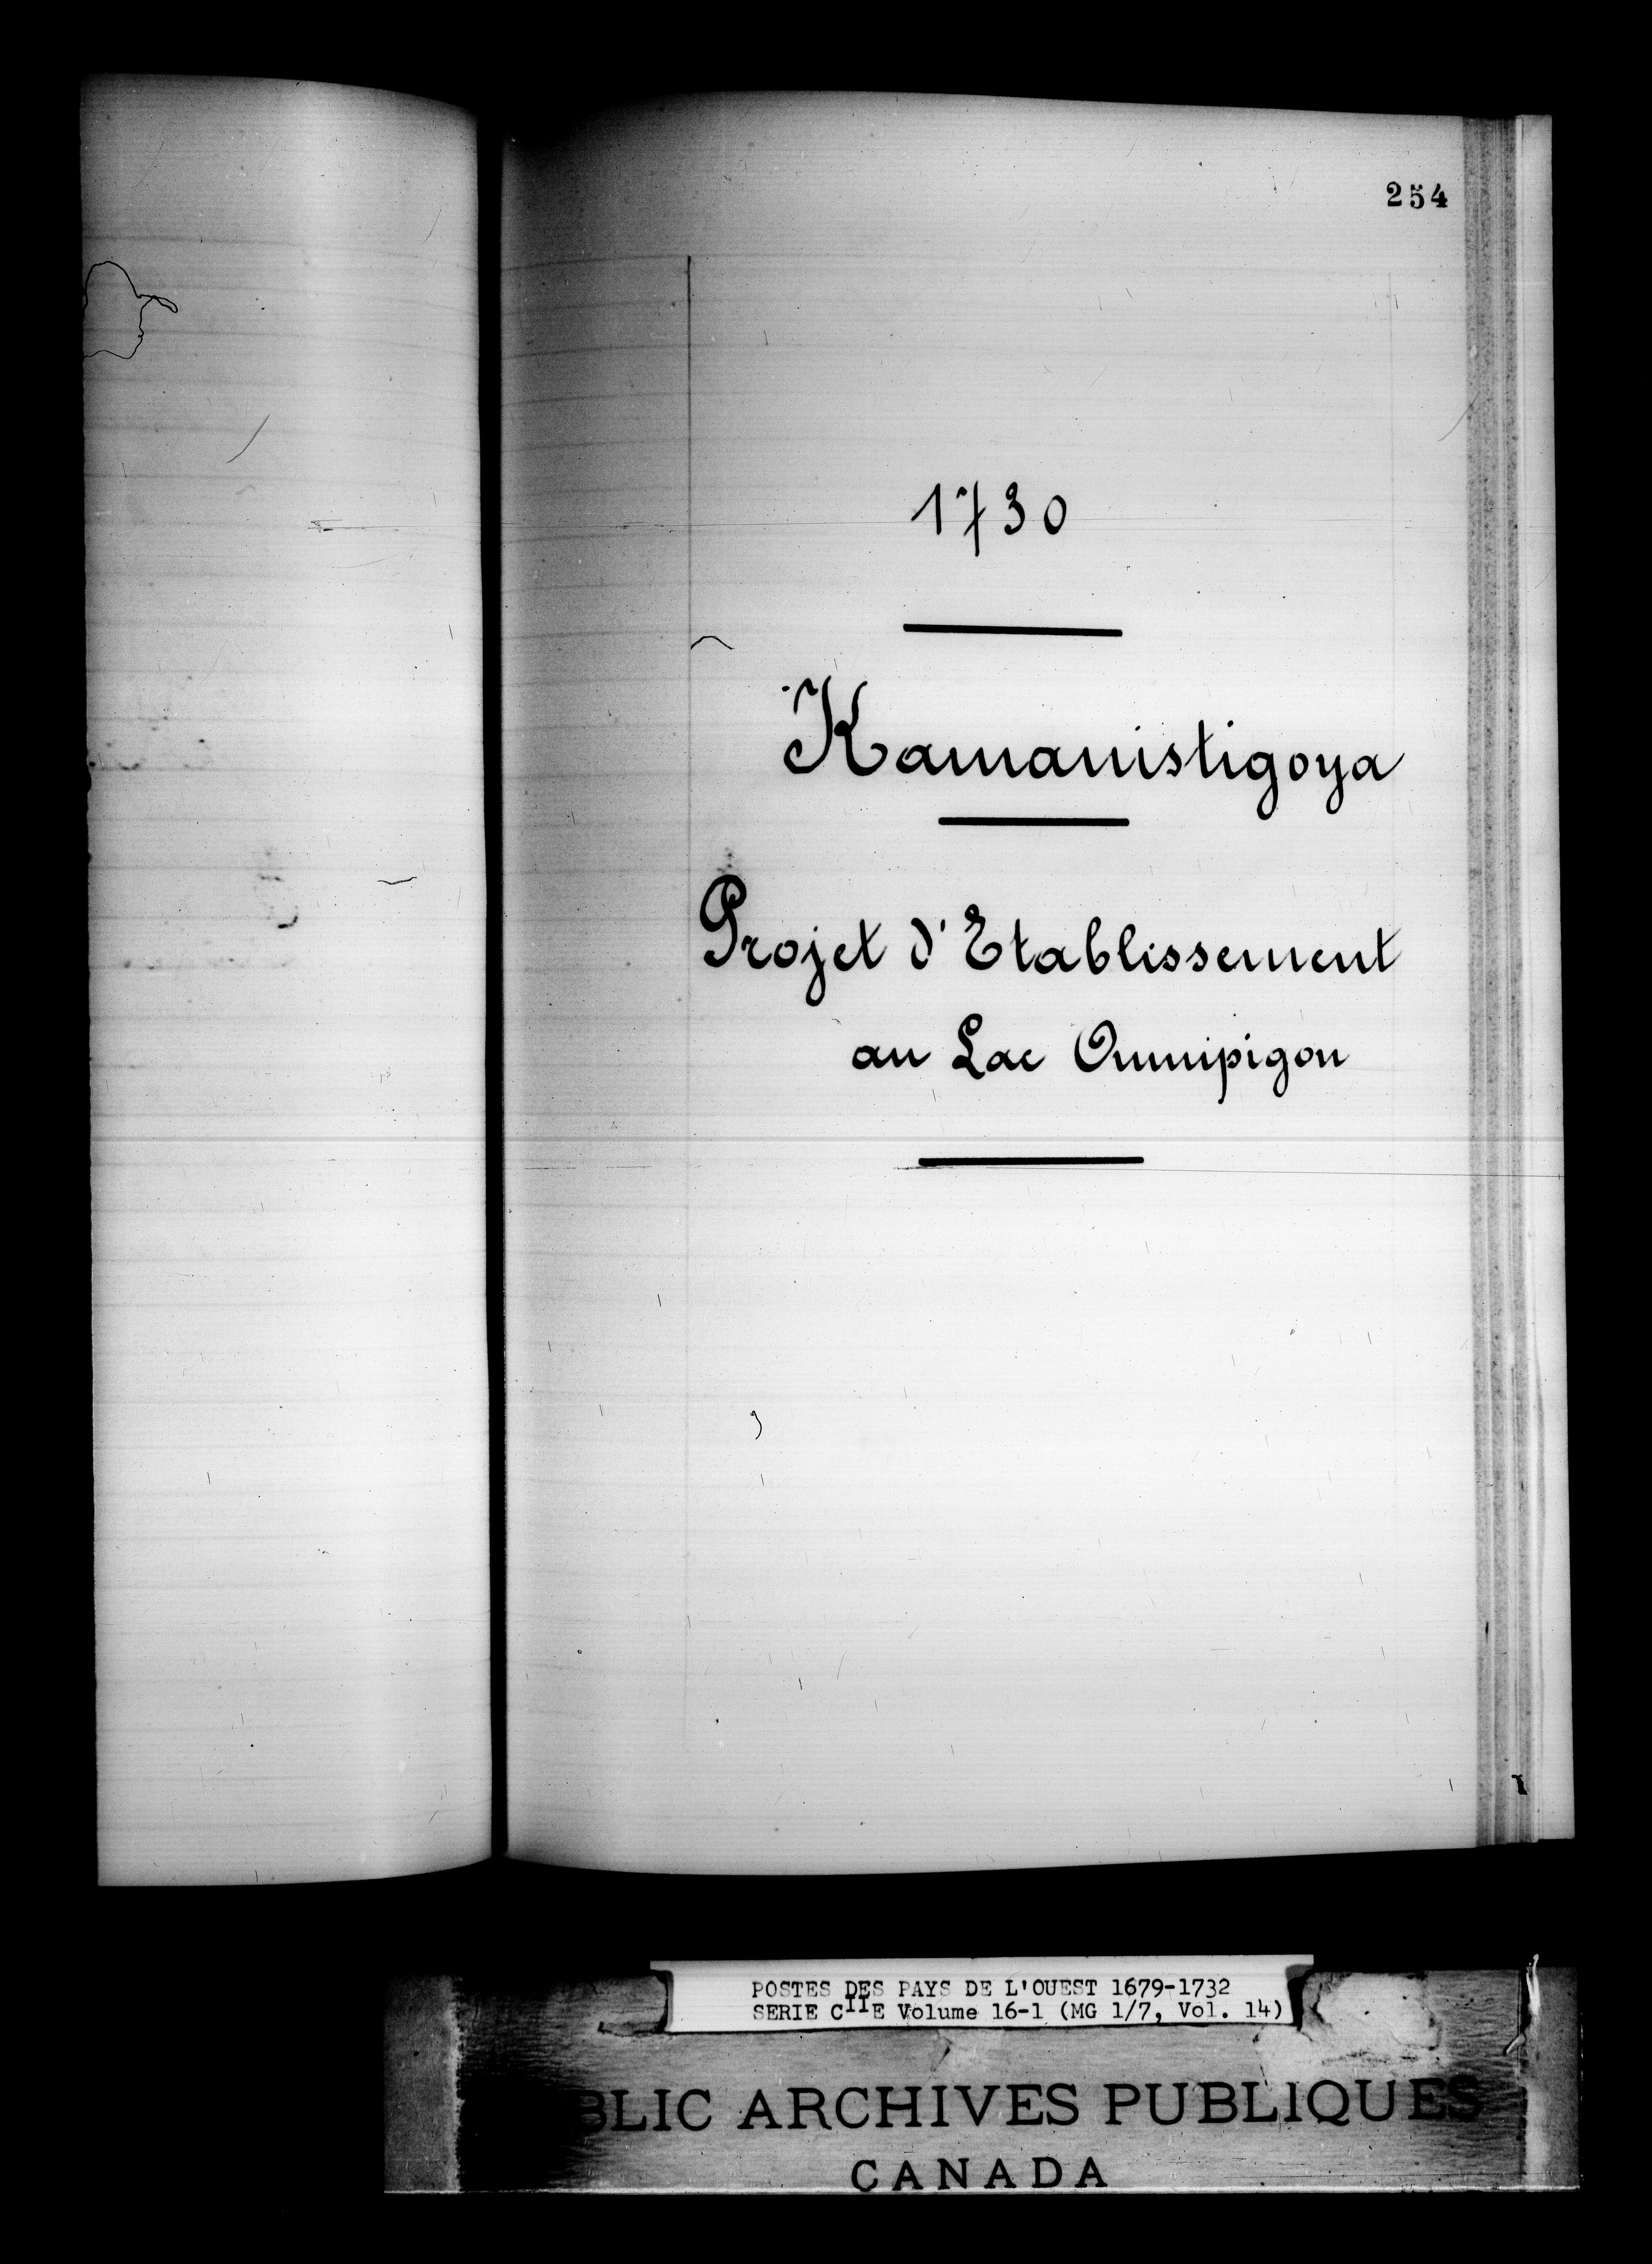 254
1730
Kamanistigoya
Projet d'Etablissement
au Lac Ounipigon
POSTES DES PAYS DE L'OUEST 1679-1732
SERIE CIIE Volume 16-1 (MG 1/7, Vol. 14)
BLIC ARCHIVES PUBLIQUES
CANADA